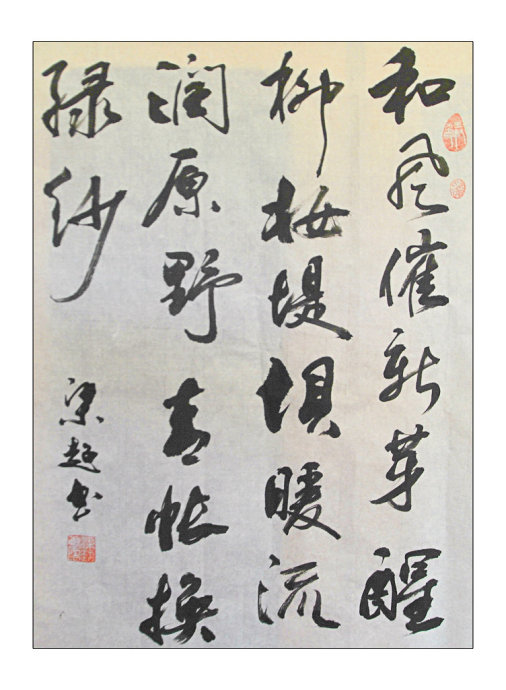 和风催新芽醒
柳妆堤坝暖流
润原野青帐换
绿纱
梁超书